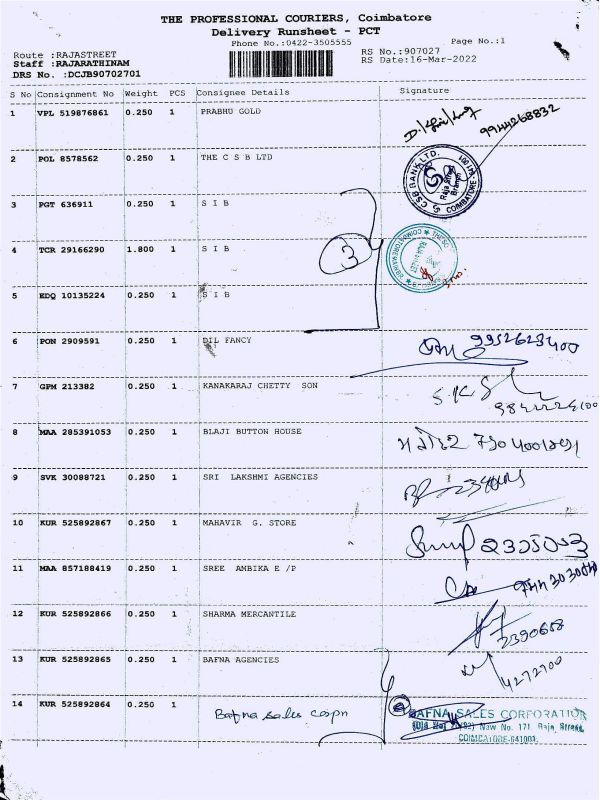 THE PROFESSIONAL COURIERS, Coimbatore
Delivery Runsheet - PCT
Phone No.:0422-3505555
Page No.:1
Route :RAJASTREET
RS No.:907027
Staff :RAJARATHINAM
RS Date:16-Mar-2022
DRS No. :DCJB90702701
S No Consignment No Weight PCS Consignee Details Signature
1 VPL 519876861 0.250 1 PRABHU GOLD
9944268832
2 POL 8578562 0.250 1 THE C S B LTD
CSB BANK LTD. Raja Street Branch COIMBATORE
3 PGT 636911 0.250 1 S I B
3
4 TCR 29166290 1.800 1 S I B
5 EDQ 10135224 0.250 1 S I B
6 PON 2909591 0.250 1 DIL FANCY
9952623400
7 GPM 213382 0.250 1 KANAKARAJ CHETTY SON
S.K
8 MAA 285391053 0.250 1 BLAJI BUTTON HOUSE
9 SVK 30088721 0.250 1 SRI LAKSHMI AGENCIES
10 KUR 525892867 0.250 1 MAHAVIR G. STORE
11 MAA 857188419 0.250 1 SREE AMBIKA E /P
12 KUR 525892866 0.250 1 SHARMA MERCANTILE
2390668
13 KUR 525892865 0.250 1 BAFNA AGENCIES
4272700
14 KUR 525892864 0.250 1 Bafna sales corpn
BAFNA SALES CORPORATION
New No. 171, Raja Street,
COIMBATORE-641001